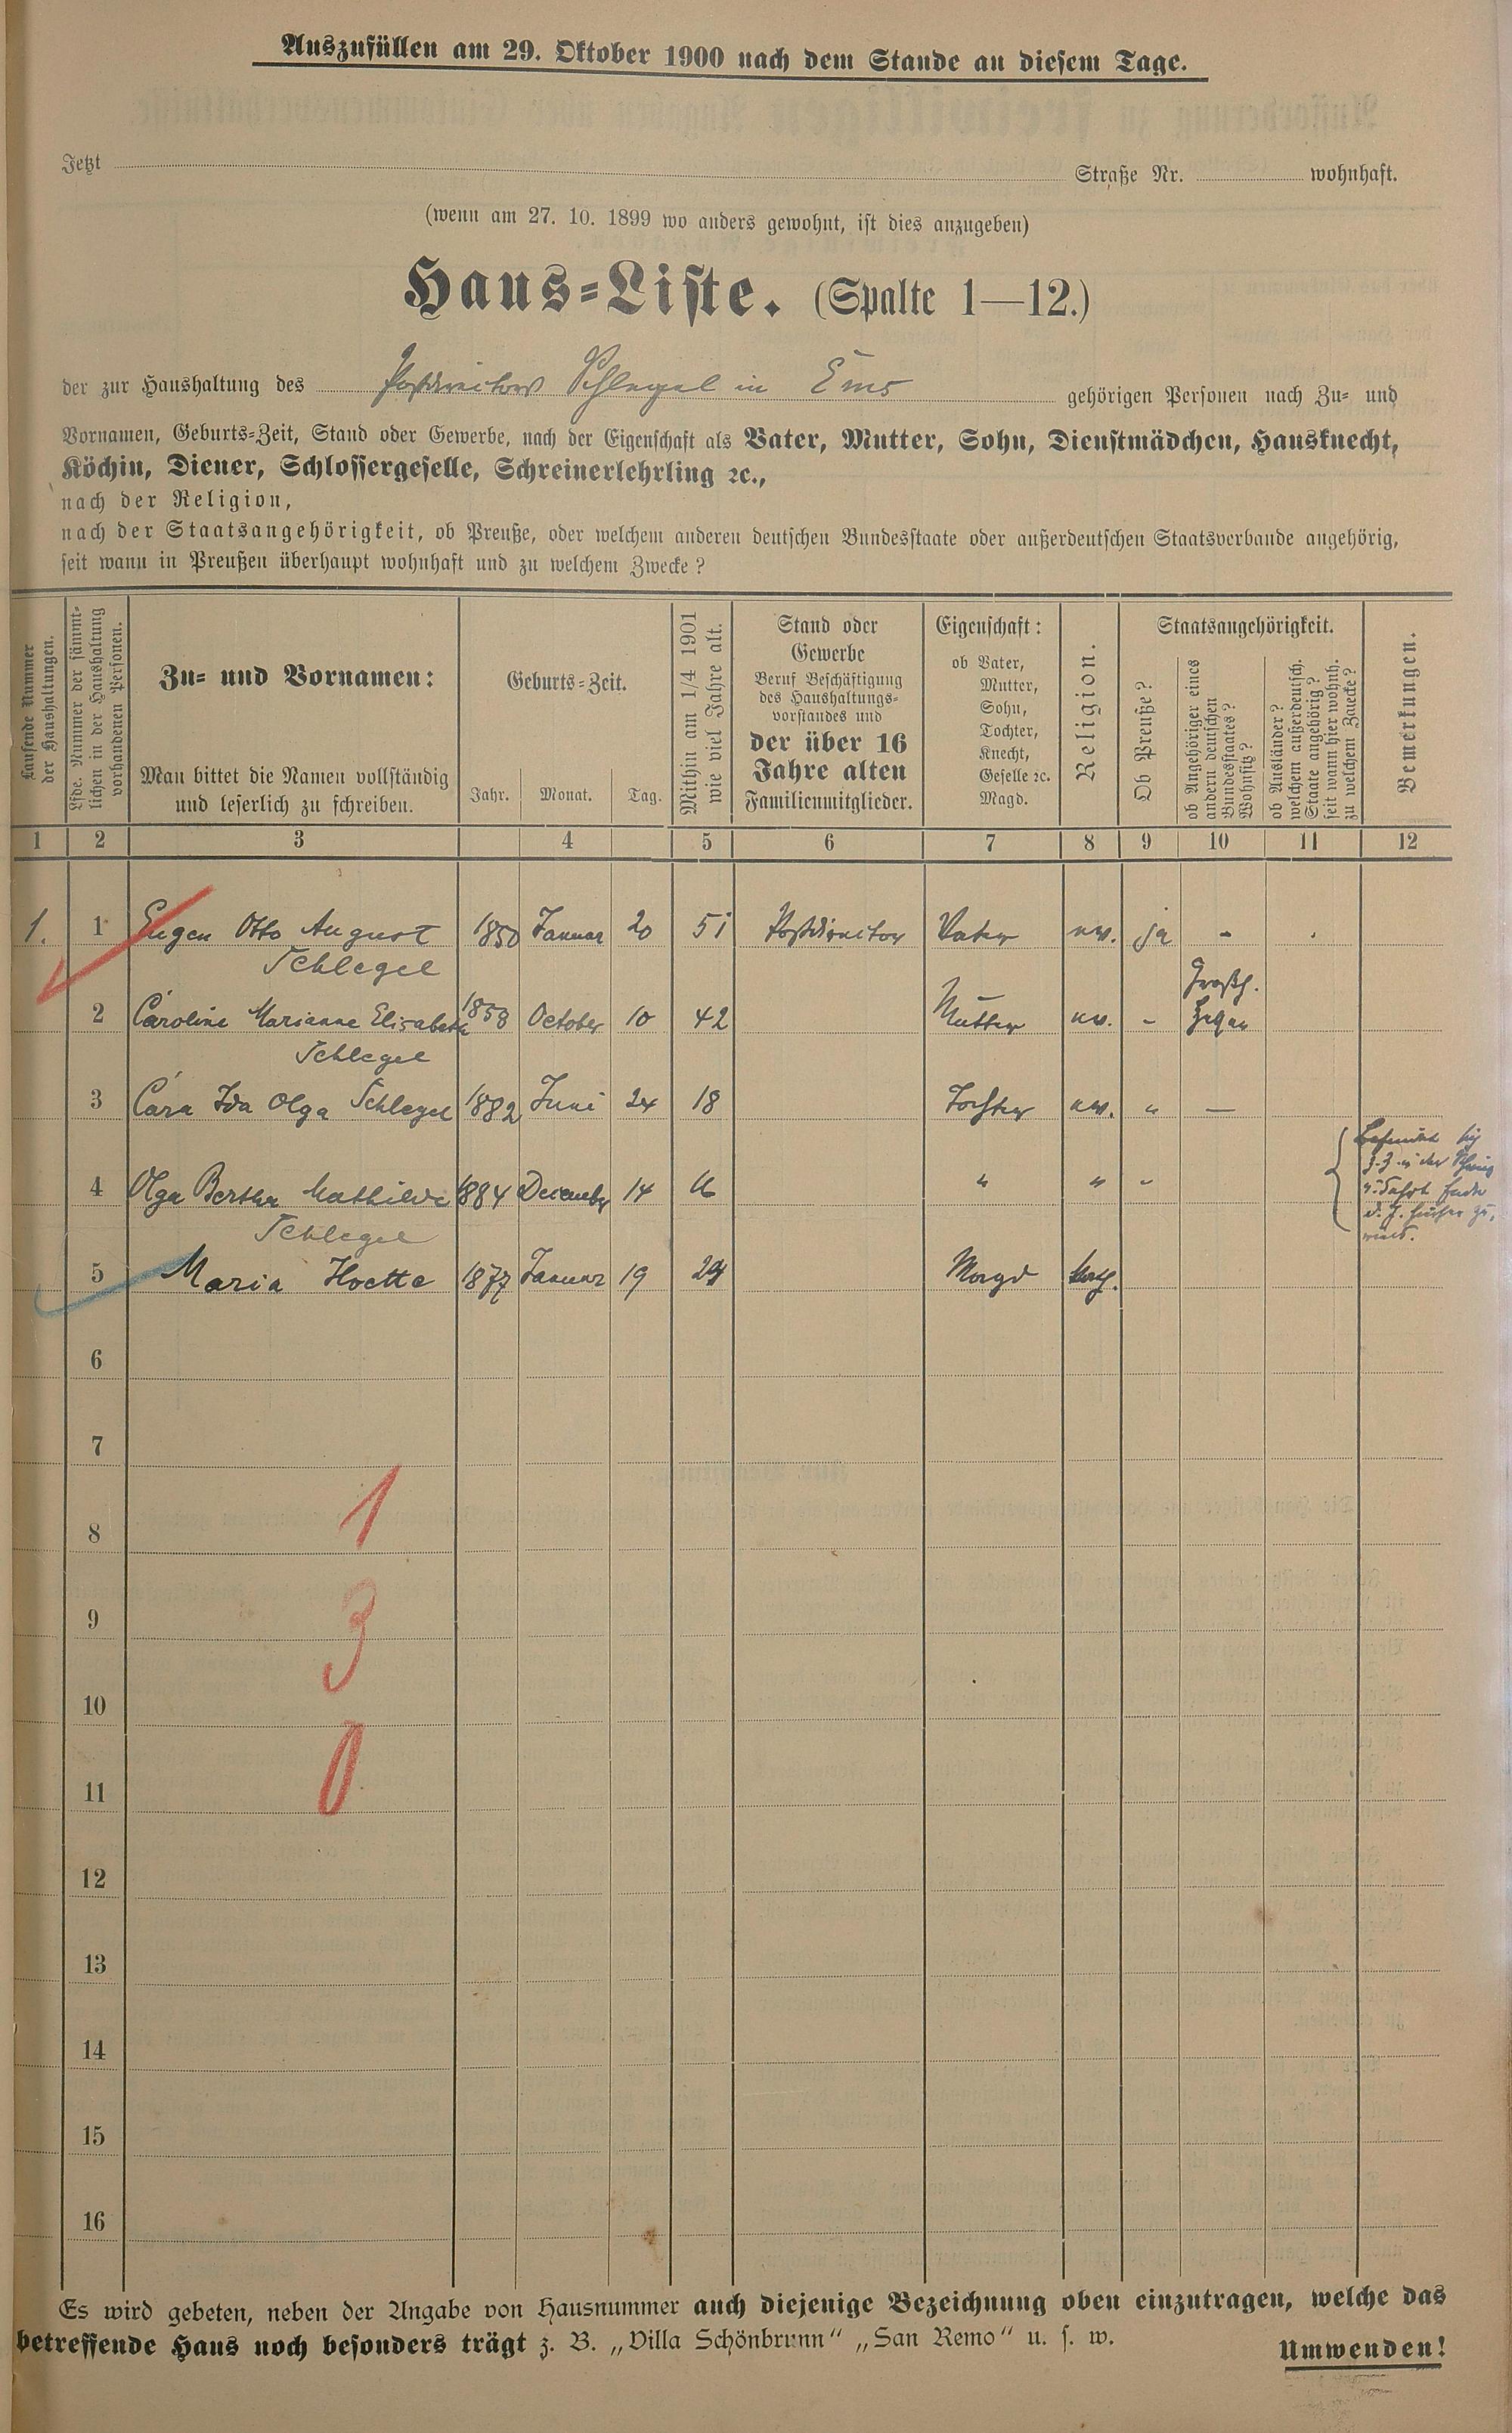 Auszufüllen am 29. Oktober 1900 nach dem Stande an diesem Tage.
Jetzt Straße Nr. wohnhaft.
(wenn am 27. 10. 1899 wo anders gewohnt, ist dies anzugeben)
Haus-Liste. (Spalte 1—12.)
der zur Haushaltung des Postdirectors Schlegel in Ems gehörigen Personen nach Zu- und
Vornamen, Geburts-Zeit, Stand oder Gewerbe, nach der Eigenschaft als Vater, Mutter, Sohn, Dienstmädchen, Hausknecht,
Köchin, Diener, Schlossergeselle, Schreinerlehrling ꝛc.,
nach der Religion,
nach der Staatsangehörigkeit, ob Preuße, oder welchem anderen deutschen Bundesstaate oder außerdeutschen Staatsverbande angehörig,
seit wann in Preußen überhaupt wohnhaft und zu welchem Zwecke?
Laufende Nummer
der Haushaltungen.
Lfde. Nummer der sämmt-
lichen in der Haushaltung
vorhandenen Personen.
Zu- und Vornamen:
Man bittet die Namen vollständig
und leserlich zu schreiben.
Geburts-Zeit.
Jahr. Monat. Tag.
Mithin am 1/4 1901
wie viel Jahre alt.
Stand oder
Gewerbe
Beruf Beschäftigung
des Haushaltungs-
vorstandes und
der über 16
Jahre alten
Familienmitglieder.
Eigenschaft:
ob Vater,
Mutter,
Sohn,
Tochter,
Knecht,
Geselle ꝛc.
Magd.
Religion.
Staatsangehörigkeit.
Ob Preuße?
ob Angehöriger eines
andern deutschen
Bundesstaates?
Wohnsitz?
ob Ausländer?
welchem außerdeutsch.
Staate angehörig?
seit wann hier wohnh.
zu welchem Zwecke?
Bemerkungen.
1 2 3 4 5 6 7 8 9 10 11 12
1. 1 Eugen Otto August 1850 Januar 20 51 Postdirector Vater ev. ja -
Schlegel
Großh.
2 Caroline Marianne Elisabeth 1858 October 10 42 Mutter ev. -
Schlegel
3 Cara Ida Olga Schlegel 1882 Juni 24 18 Tochter ev. " —
4 Olga Bertha Mathilde 1884 December 14 16 " " "
Schlegel
5 Maria Hoette 1877 Januar 19 24 Magd kath.
6
7
1
8
9
3
10
0
11
12
13
14
15
16
Es wird gebeten, neben der Angabe von Hausnummer auch diejenige Bezeichnung oben einzutragen, welche das
betreffende Haus noch besonders trägt z. B. „Villa Schönbrunn“ „San Remo“ u. s. w.
Umwenden!